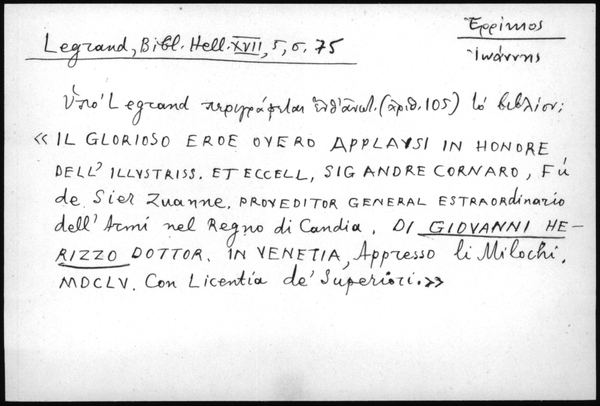 Ἐρρίμος
Legrand, Bibl. Hell. XVII, 5, σ. 75
Ἰωάννης
Ὑπὸ Legrand περιγράφεται (ἀριθ. 105) τὸ βιβλίον:
«IL GLORIOSO EROE OVERO APPLAYSI IN HONORE
DELL' ILLVSTRISS. ET ECCELL, SIG ANDRE CORNARO, Fú
de Sier Zuanne, PROVEDITOR GENERAL ESTRAORdinario
dell' Armi nel Regno di Candia. DI GIOVANNI HE-
RIZZO DOTTOR. IN VENETIA, Appresso li Milochi.
MDCLV. Con Licentia de' Superiori.»